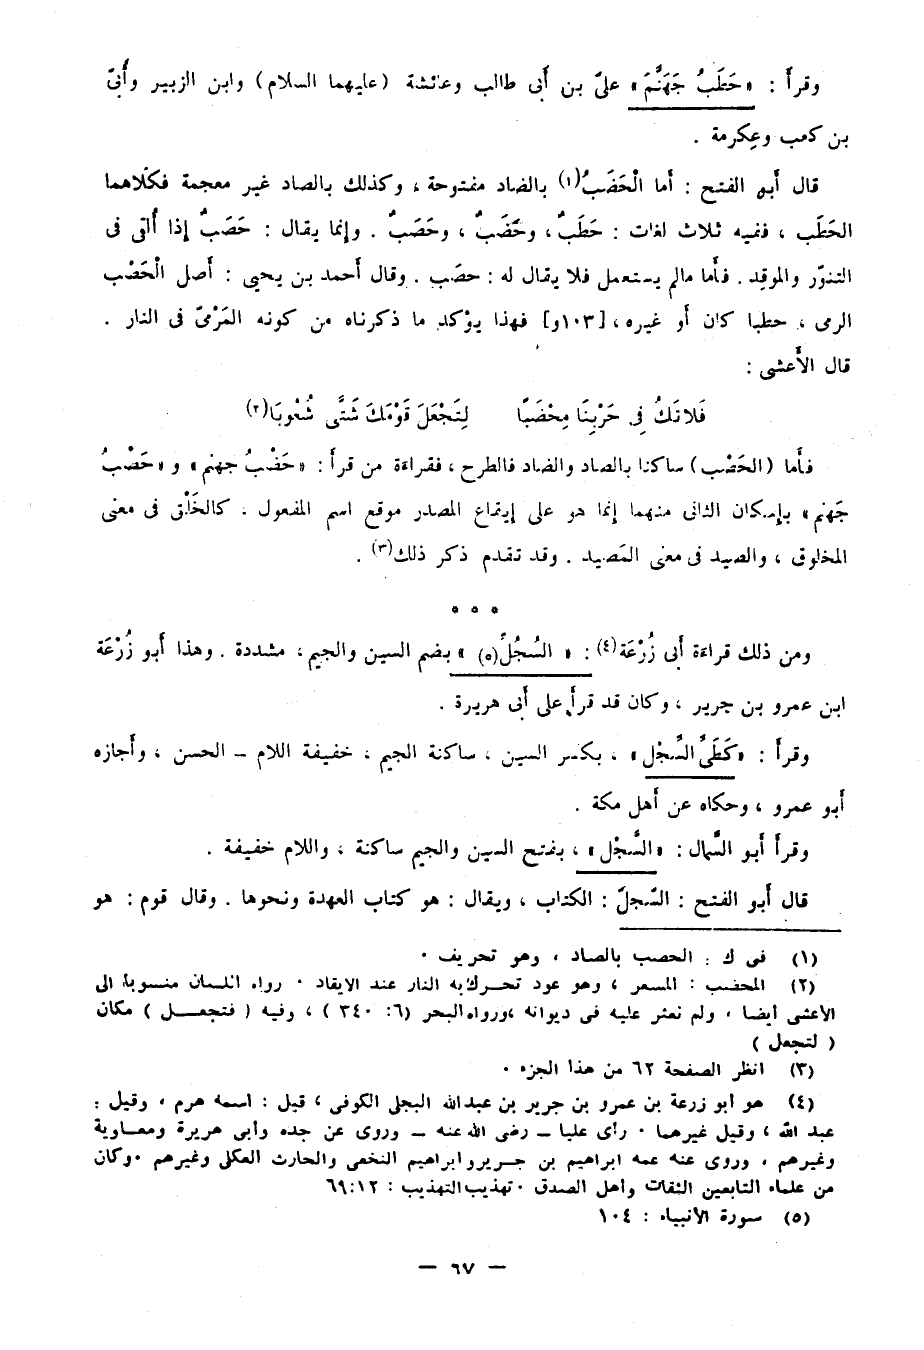 وقرأ : «حَطَبُ جَهَنَّمَ» علىّ بن أبى طالب وعائشة (عليهما السلام) وابن الزبير وأُبىّ
بن كعب وعِكرمة .
قال أبو الفتح : أما الْحَضَبُ(١) بالضاد مفتوحة ، وكذلك بالصاد غير معجمة فكلاهما
الحَطَب ، ففيه ثلاث لغات : حَطَبٌ، وحَضَبٌ ، وحَصَبٌ . وإنما يقال : حَصَبٌ إذا أُلقى فى
التنوّر والموقِد . فأما مالم يستعمل فلا يقال له : حصَب . وقال أحمد بن يحيى : أصل الْحَصْب
الرمى ، حطبا كان أو غيره ، [١٠٣و] فهذا يؤكد ما ذكرناه من كونه المَرْمىّ فى النار .
قال الأَعشى :
فَلاتَكُ فِى حَرْبِنَا مِحْضَبًا لِتَجْعَلَ قَوْمَكَ شَتَّى شُعُوبَا(٢)
فأما (الحَضْب) ساكنا بالصاد والضاد فالطرح ، فقراءة من قرأ : «حَضْبُ جهنم» و «حَصْبُ
جَهنم» بإسكان الثانى منهما إنما هو على إيقاع المصدر موقع اسم المفعول ، كالخَلْق فى معنى
المخلوق ، والصيد فى معنى المَصيد . وقد تقدم ذكر ذلك(٣) .
* * *
ومن ذلك قراءة أبى زُرْعَة(٤) : « السُجُلِّ(٥) » بضم السين والجيم ، مشددة . وهذا أبو زُرْعَة
ابن عمرو بن جرير ، وكان قد قرأ على أبى هريرة .
وقرأ : «كَطَىِّ السِّجْلِ» ، بكسر السين ، ساكنة الجيم ، خفيفة اللام – الحسن ، وأجازه
أبو عمرو ، وحكاه عن أهل مكة .
وقرأ أبو السَّمال : «السَّجْلِ» ، بفتح السين والجيم ساكنة ، واللام خفيفة .
قال أبو الفتح : السِّجلّ : الكتاب ، ويقال : هو كتاب العهدة ونحوها . وقال قوم : هو
(١) فى ك : الحصب بالصاد ، وهو تحريف .
(٢) المحضب : المسعر ، وهو عود تحرك به النار عند الايقاد . رواه اللسان منسوبا الى
الأعشى أيضا ، ولم نعثر عليه فى ديوانه ، ورواه البحر (٦: ٣٤٠) ، وفيه ( فتجعل ) مكان
( لتجعل )
(٣) انظر الصفحة ٦٢ من هذا الجزء .
(٤) هو أبو زرعة بن عمرو بن جرير بن عبدالله البجلى الكوفى ، قيل : اسمه هرم ، وقيل :
عبد الله ، وقيل غيرهما . رأى عليا – رضى الله عنه – وروى عن جده وأبى هريرة ومعاوية
وغيرهم ، وروى عنه عمه ابراهيم بن جرير وابراهيم النخعى والحارث العكلى وغيرهم . وكان
من علماء التابعين الثقات وأهل الصدق . تهذيب التهذيب : ٦٩:١٢
(٥) سورة الأنبياء : ١٠٤
– ٦٧ –